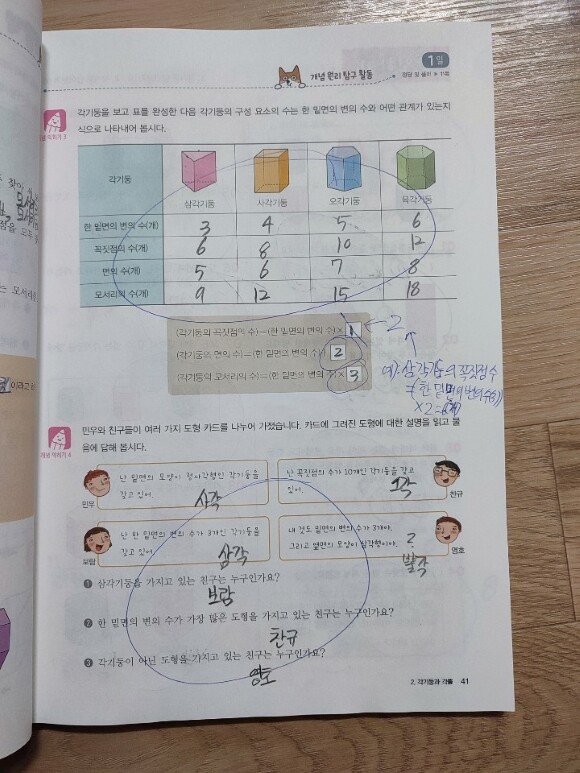 개념 원리 탐구 활동
1일
정답 및 풀이 ▶ 11쪽
각기둥을 보고 표를 완성한 다음 각기둥의 구성 요소의 수는 한 밑면의 변의 수와 어떤 관계가 있는지
식으로 나타내어 봅시다.
각기둥
삼각기둥 사각기둥 오각기둥 육각기둥
한 밑면의 변의 수(개) 3 4 5 6
꼭짓점의 수(개) 6 8 10 12
면의 수(개) 5 6 7 8
모서리의 수(개) 9 12 15 18
(각기둥의 꼭짓점의 수)=(한 밑면의 변의 수)× 1 ← 2
(각기둥의 면의 수)=(한 밑면의 변의 수) 2
(각기둥의 모서리의 수)=(한 밑면의 변의 수)× 3
예): 삼각기둥의 꼭짓점수
=(한 밑면의 변의 수(3))
×2=6(개)
개념 익히기 4
민우와 친구들이 여러 가지 도형 카드를 나누어 가졌습니다. 카드에 그려진 도형에 대한 설명을 읽고 물
음에 답해 봅시다.
난 밑면의 모양이 정사각형인 각기둥을
갖고 있어.
사각
민우
난 꼭짓점의 수가 10개인 각기둥을 갖고
있어.
오각
찬규
난 한 밑면의 변의 수가 3개인 각기둥을
갖고 있어.
삼각
보람
내 것도 밑면의 변의 수가 3개야.
그리고 옆면의 모양이 삼각형이야.
?
영호
❶ 삼각기둥을 가지고 있는 친구는 누구인가요?
보람
❷ 한 밑면의 변의 수가 가장 많은 도형을 가지고 있는 친구는 누구인가요?
찬규
❸ 각기둥이 아닌 도형을 가지고 있는 친구는 누구인가요?
영호
2. 각기둥과 각뿔 41